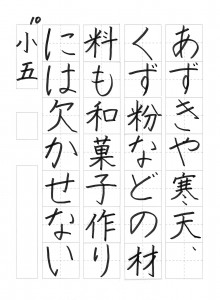 あずきや寒天、
くず粉などの材
料も和菓子作り
には欠かせない
小五
10